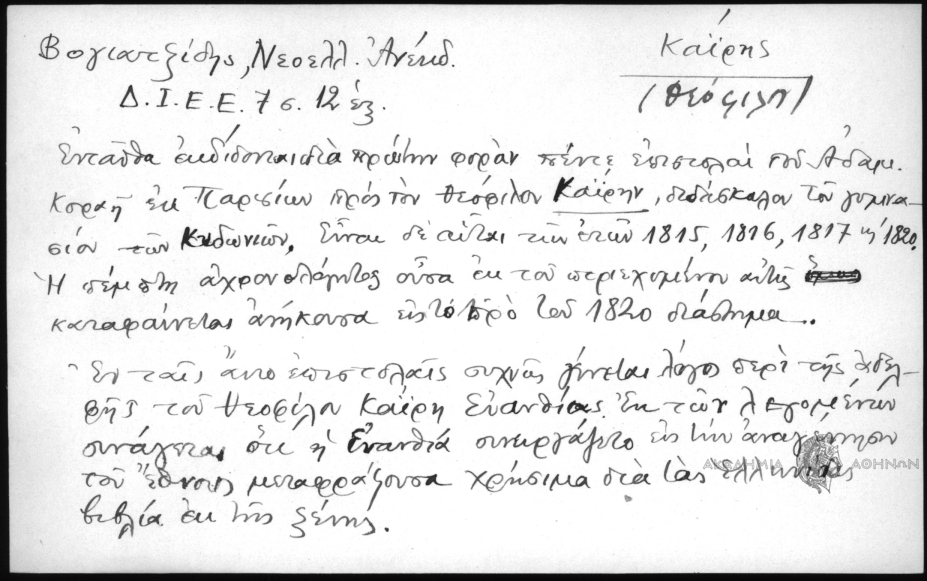 Βογιατζίδης, Νεοελλ. Ἀνέκδ.
Δ.Ι.Ε.Ε. 7 σ. 12 ἑξ.
Καΐρης
(Θεόφιλος)
Ἐνταῦθα ἐκδίδονται διὰ πρώτην φορὰν πέντε ἐπιστολαὶ τοῦ Ἀδαμ.
Κοραῆ ἐκ Παρισίων πρὸς τὸν Θεόφιλον Καΐρην, διδάσκαλον τοῦ γυμνα-
σίου τῶν Κυδωνιῶν. Εἶναι δὲ αὗται τῶν ἐτῶν 1815, 1816, 1817 κ 1820.
Ἡ πέμπτη ἀχρονολόγητος οὖσα ἐκ τοῦ περιεχομένου αὐτῆς
καταφαίνεται ἀνήκουσα εἰς τὸ πρὸ τοῦ 1820 διάστημα..
Ἐν ταῖς ἄνω ἐπιστολαῖς συχνῶς γίνεται λόγος περὶ τῆς ἀδελ-
φῆς τοῦ Θεοφίλου Καΐρη Εὐανθίας. Ἐκ τῶν λεγομένων
συνάγεται ὅτι ἡ Εὐανθία συνειργάζετο εἰς τὴν ἀναγέννησιν
τοῦ ἔθνους μεταφράζουσα χρήσιμα διὰ τὰς ἑλληνίδας
βιβλία ἐκ τῆς ξένης.
ΑΚΑΔΗΜΙΑ ΑΘΗΝΩΝ